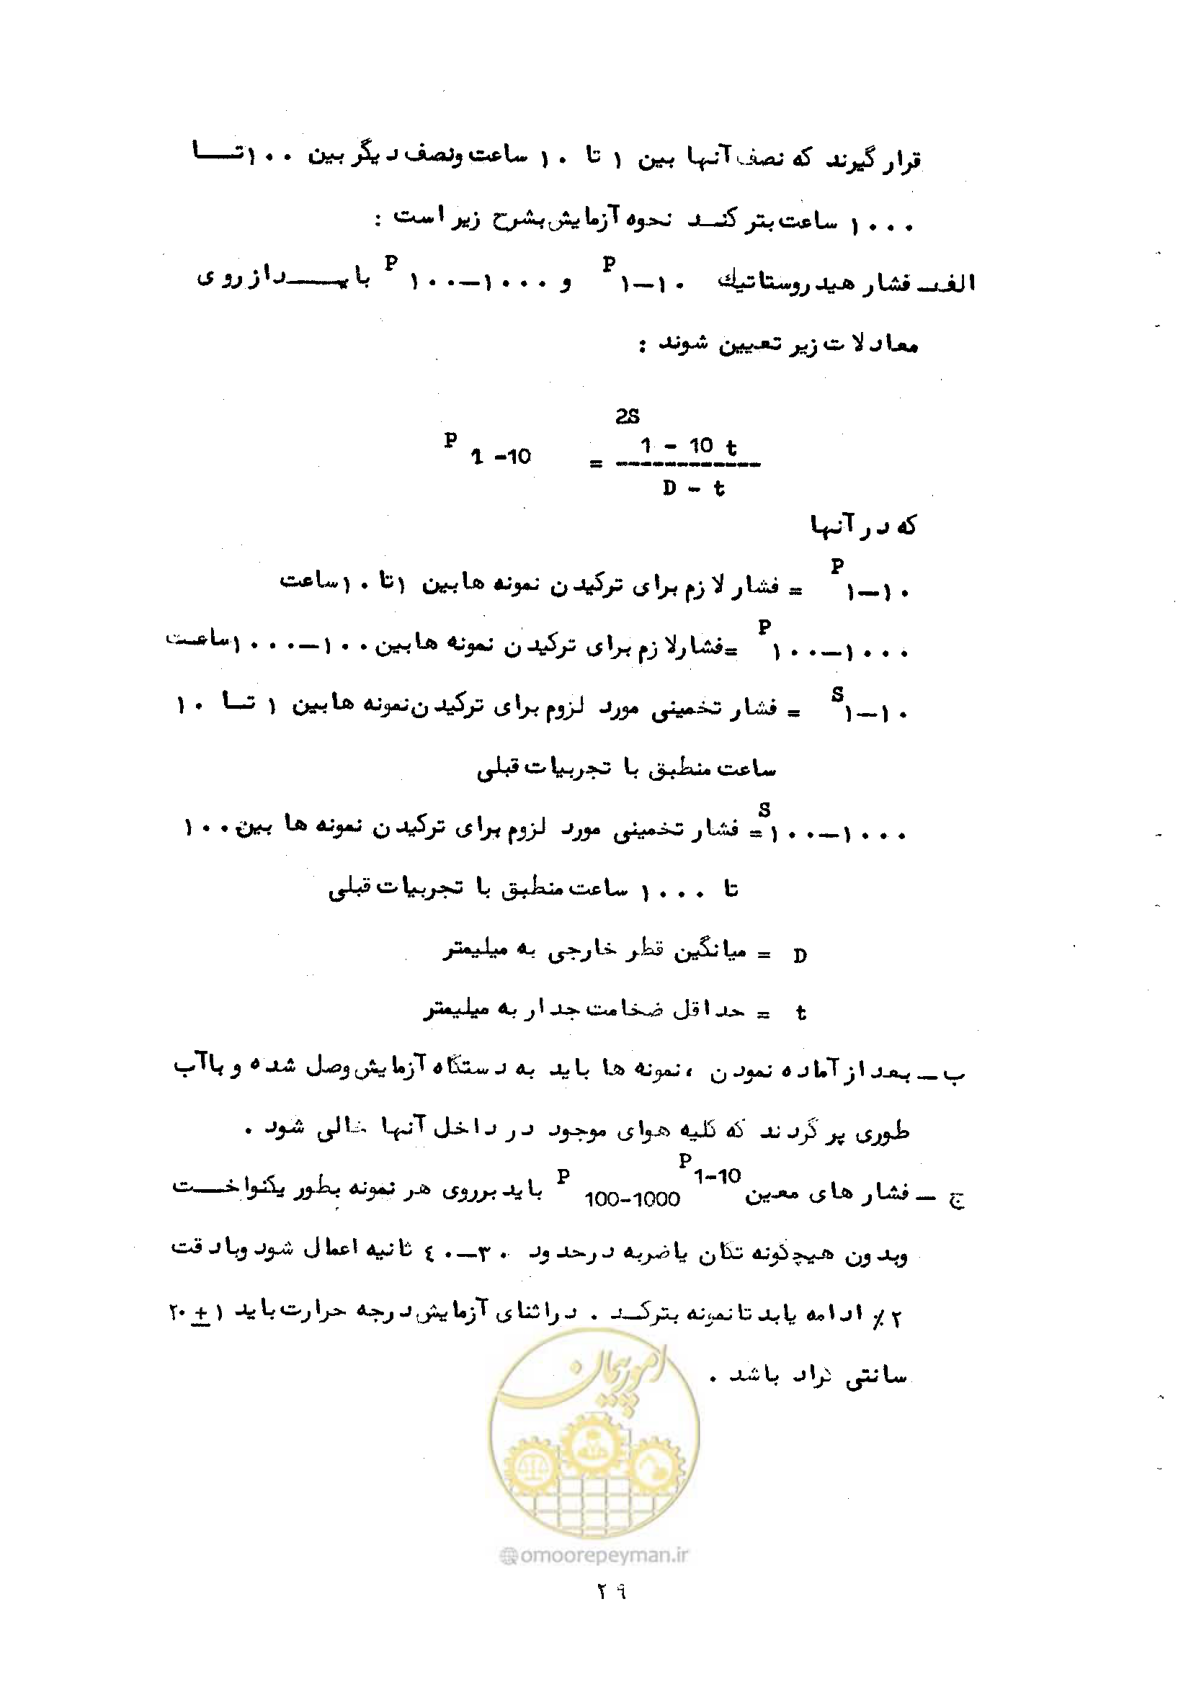 قرار گیرند که نصف آنها بین ۱ تا ۱۰ ساعت ونصف دیگر بین ۱۰۰ تا
۱۰۰۰ ساعت بترکند نحوه آزمایش بشرح زیر است :
الف ـ فشار هیدروستاتیك P ۱ـ۱۰ و P ۱۰۰ـ۱۰۰۰ باید از روی
معادلات زیر تعیین شوند :
2S
P 1-10 = 1 - 10 t
D - t
که در آنها
P ۱ـ۱۰ = فشار لازم برای ترکیدن نمونه ها بین ۱ تا ۱۰ ساعت
P ۱۰۰ـ۱۰۰۰ = فشار لازم برای ترکیدن نمونه ها بین ۱۰۰ـ۱۰۰۰ ساعت
S ۱ـ۱۰ = فشار تخمینی مورد لزوم برای ترکیدن نمونه ها بین ۱ تا ۱۰
ساعت منطبق با تجربیات قبلی
S ۱۰۰ـ۱۰۰۰ = فشار تخمینی مورد لزوم برای ترکیدن نمونه ها بین ۱۰۰
تا ۱۰۰۰ ساعت منطبق با تجربیات قبلی
D = میانگین قطر خارجی به میلیمتر
t = حداقل ضخامت جدار به میلیمتر
ب ـ بعد از آماده نمودن ، نمونه ها باید به دستگاه آزمایش وصل شده و با آب
طوری پر گردند که کلیه هوای موجود در داخل آنها خالی شود .
ج ـ فشار های معین P 1-10 P 100-1000 باید برروی هر نمونه بطور یکنواخت
وبدون هیچگونه تکان یا ضربه در حدود ۳۰ـ۴۰ ثانیه اعمال شود وبا دقت
۲٪ ادامه یابد تا نمونه بترکد . در اثنای آزمایش درجه حرارت باید ۱ ± ۲۰
سانتی گراد باشد .
امور پیمان
@omoorepeyman.ir
۲۹